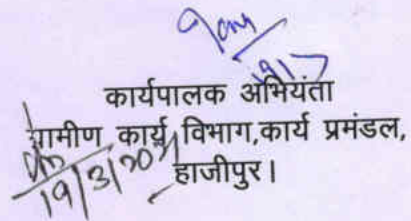 19/7
कार्यपालक अभियंता
ग्रामीण कार्य विभाग,कार्य प्रमंडल,
हाजीपुर।
19/3/2021